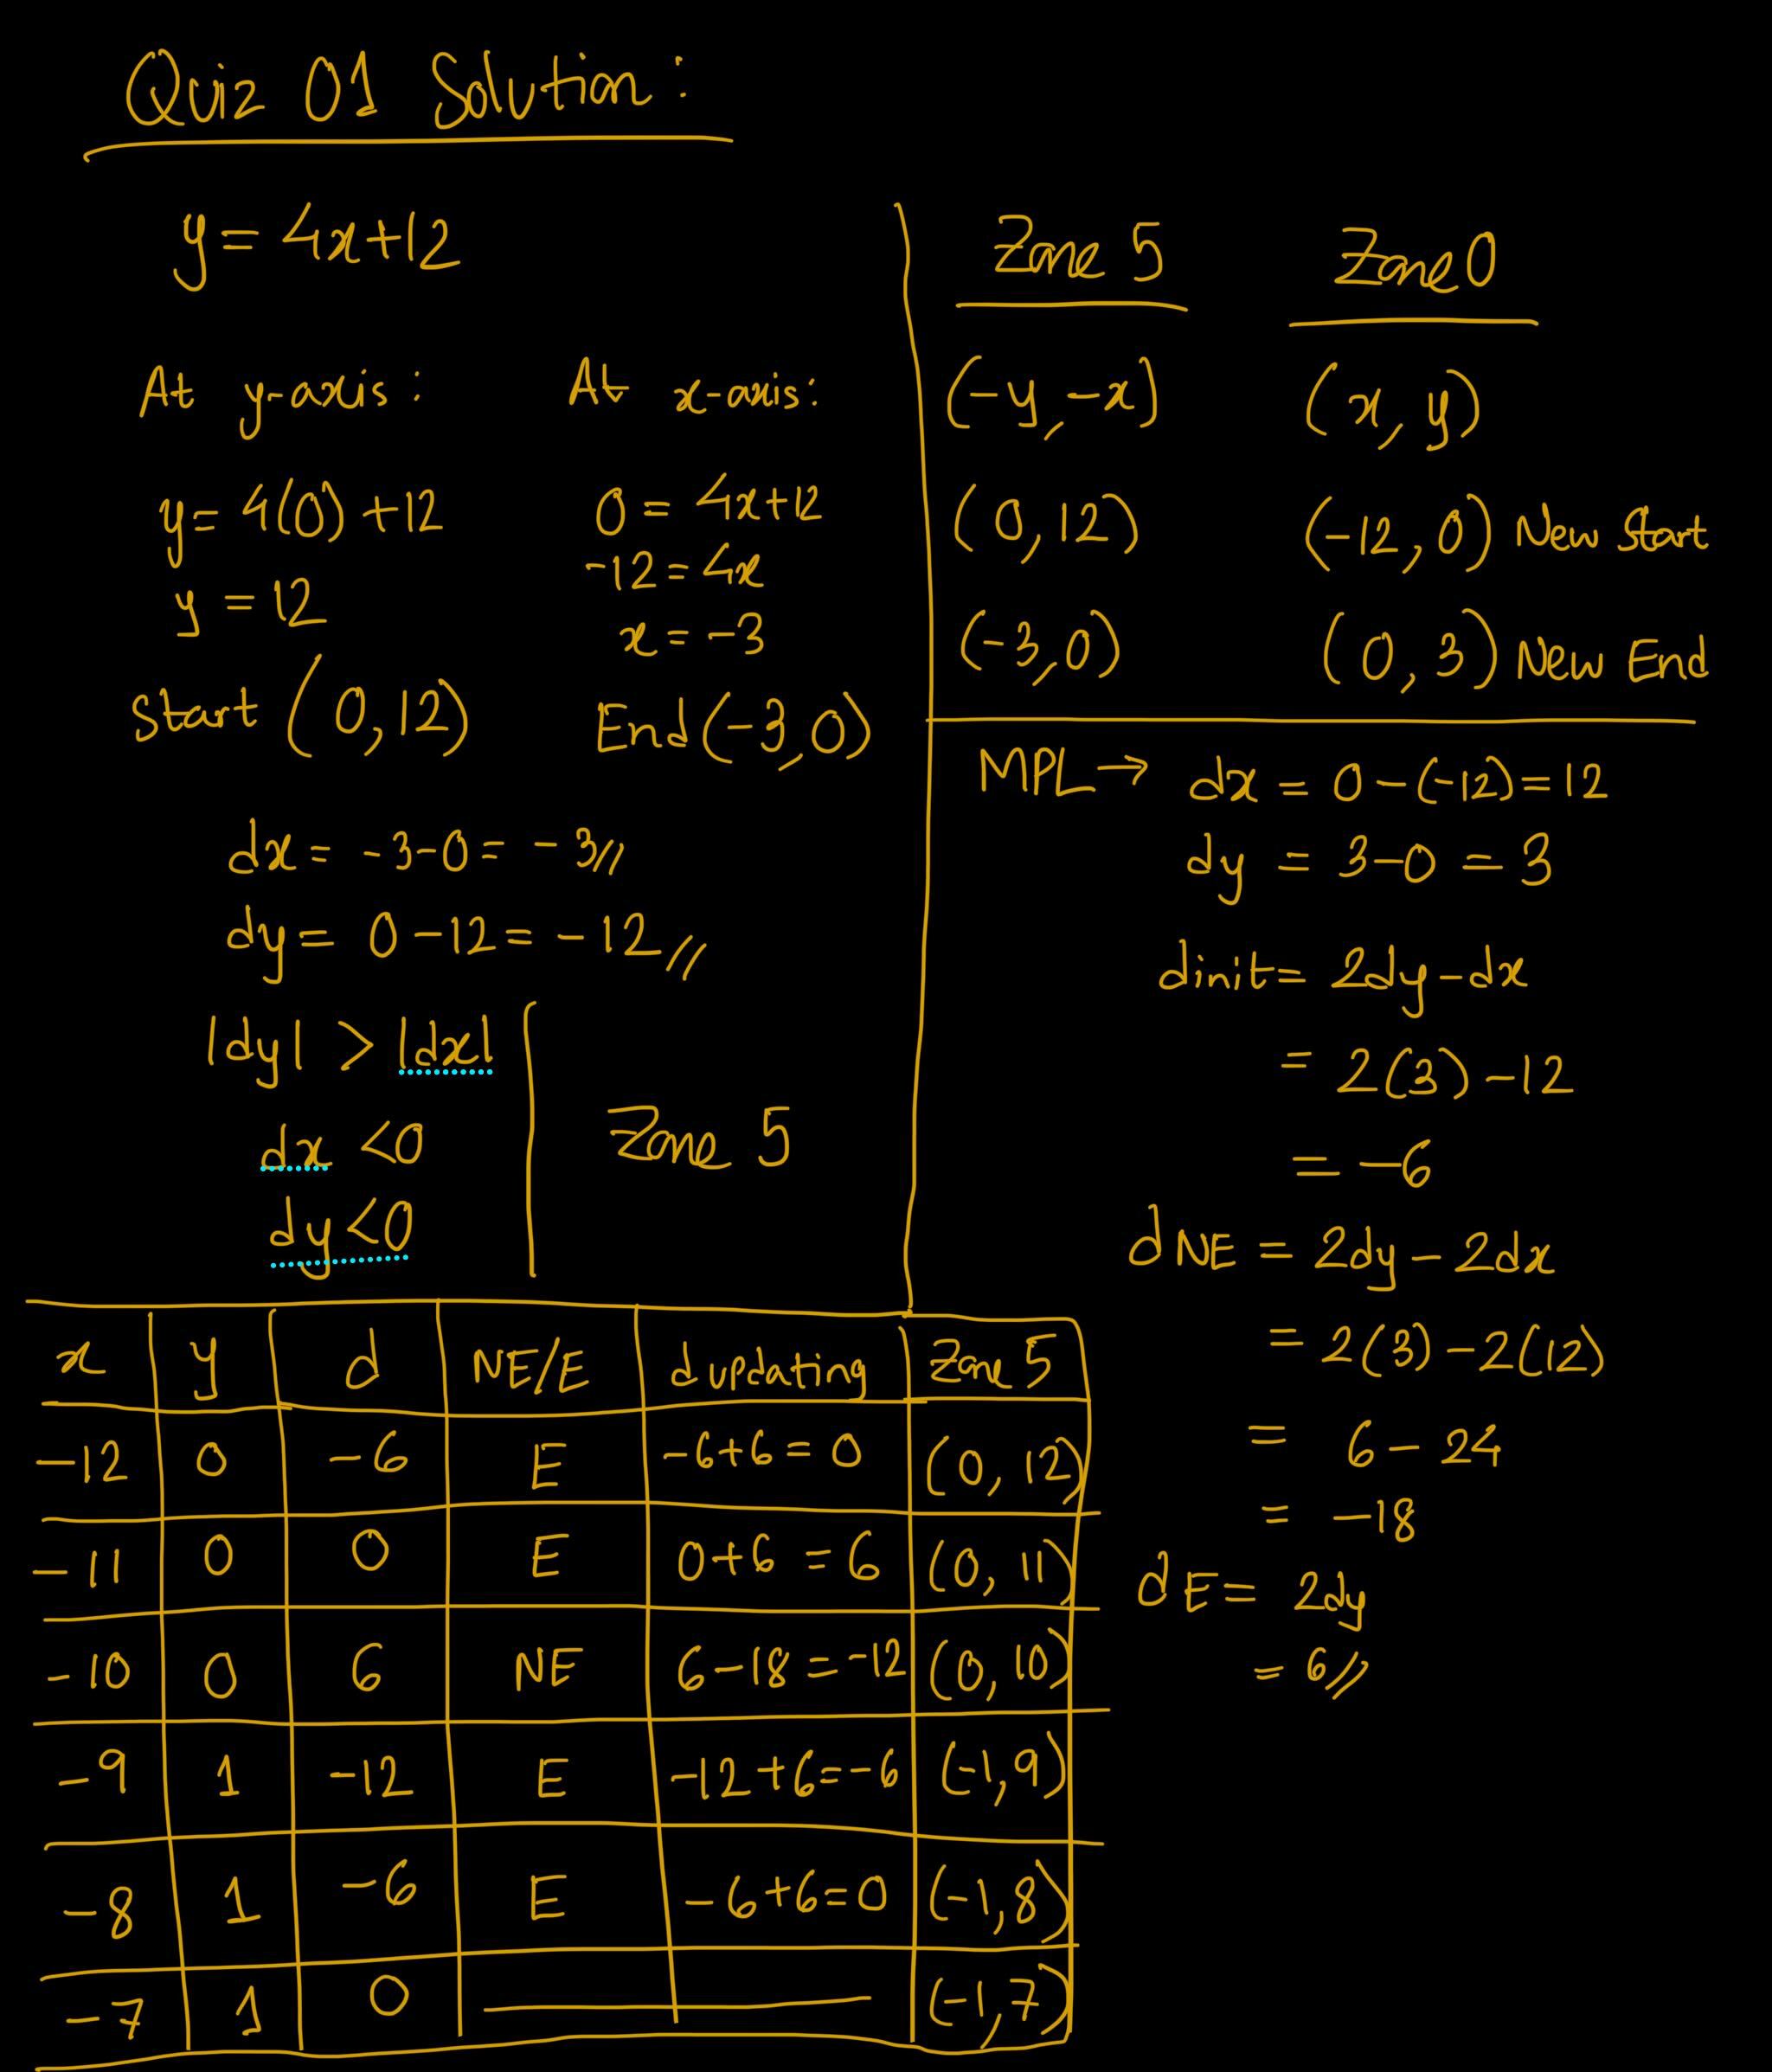 Quiz 01 Solution:
y = 4x+12
At y-axis:
y = 4(0) +12
y = 12
Start (0,12)
At x-axis:
0 = 4x+12
-12 = 4x
x = -3
End (-3,0)
dx = -3-0 = -3//
dy = 0-12 = -12//
|dy| > |dx|
dx <0
dy <0
Zone 5
Zone 5 Zone 0
(-y, -x) (x, y)
(0,12) (-12, 0) New Start
(-3,0) (0, 3) New End
MPL → dx = 0-(-12) = 12
dy = 3-0 = 3
dinit = 2dy-dx
= 2(3)-12
= -6
dNE = 2dy-2dx
= 2(3)-2(12)
= 6-24
= -18
dE = 2dy
= 6//
x y d NE/E d updating Zone 5
-12 0 -6 E -6+6=0 (0, 12)
-11 0 0 E 0+6=6 (0, 11)
-10 0 6 NE 6-18=-12 (0, 10)
-9 1 -12 E -12+6=-6 (-1,9)
-8 1 -6 E -6+6=0 (-1,8)
-7 1 0 (-1,7)